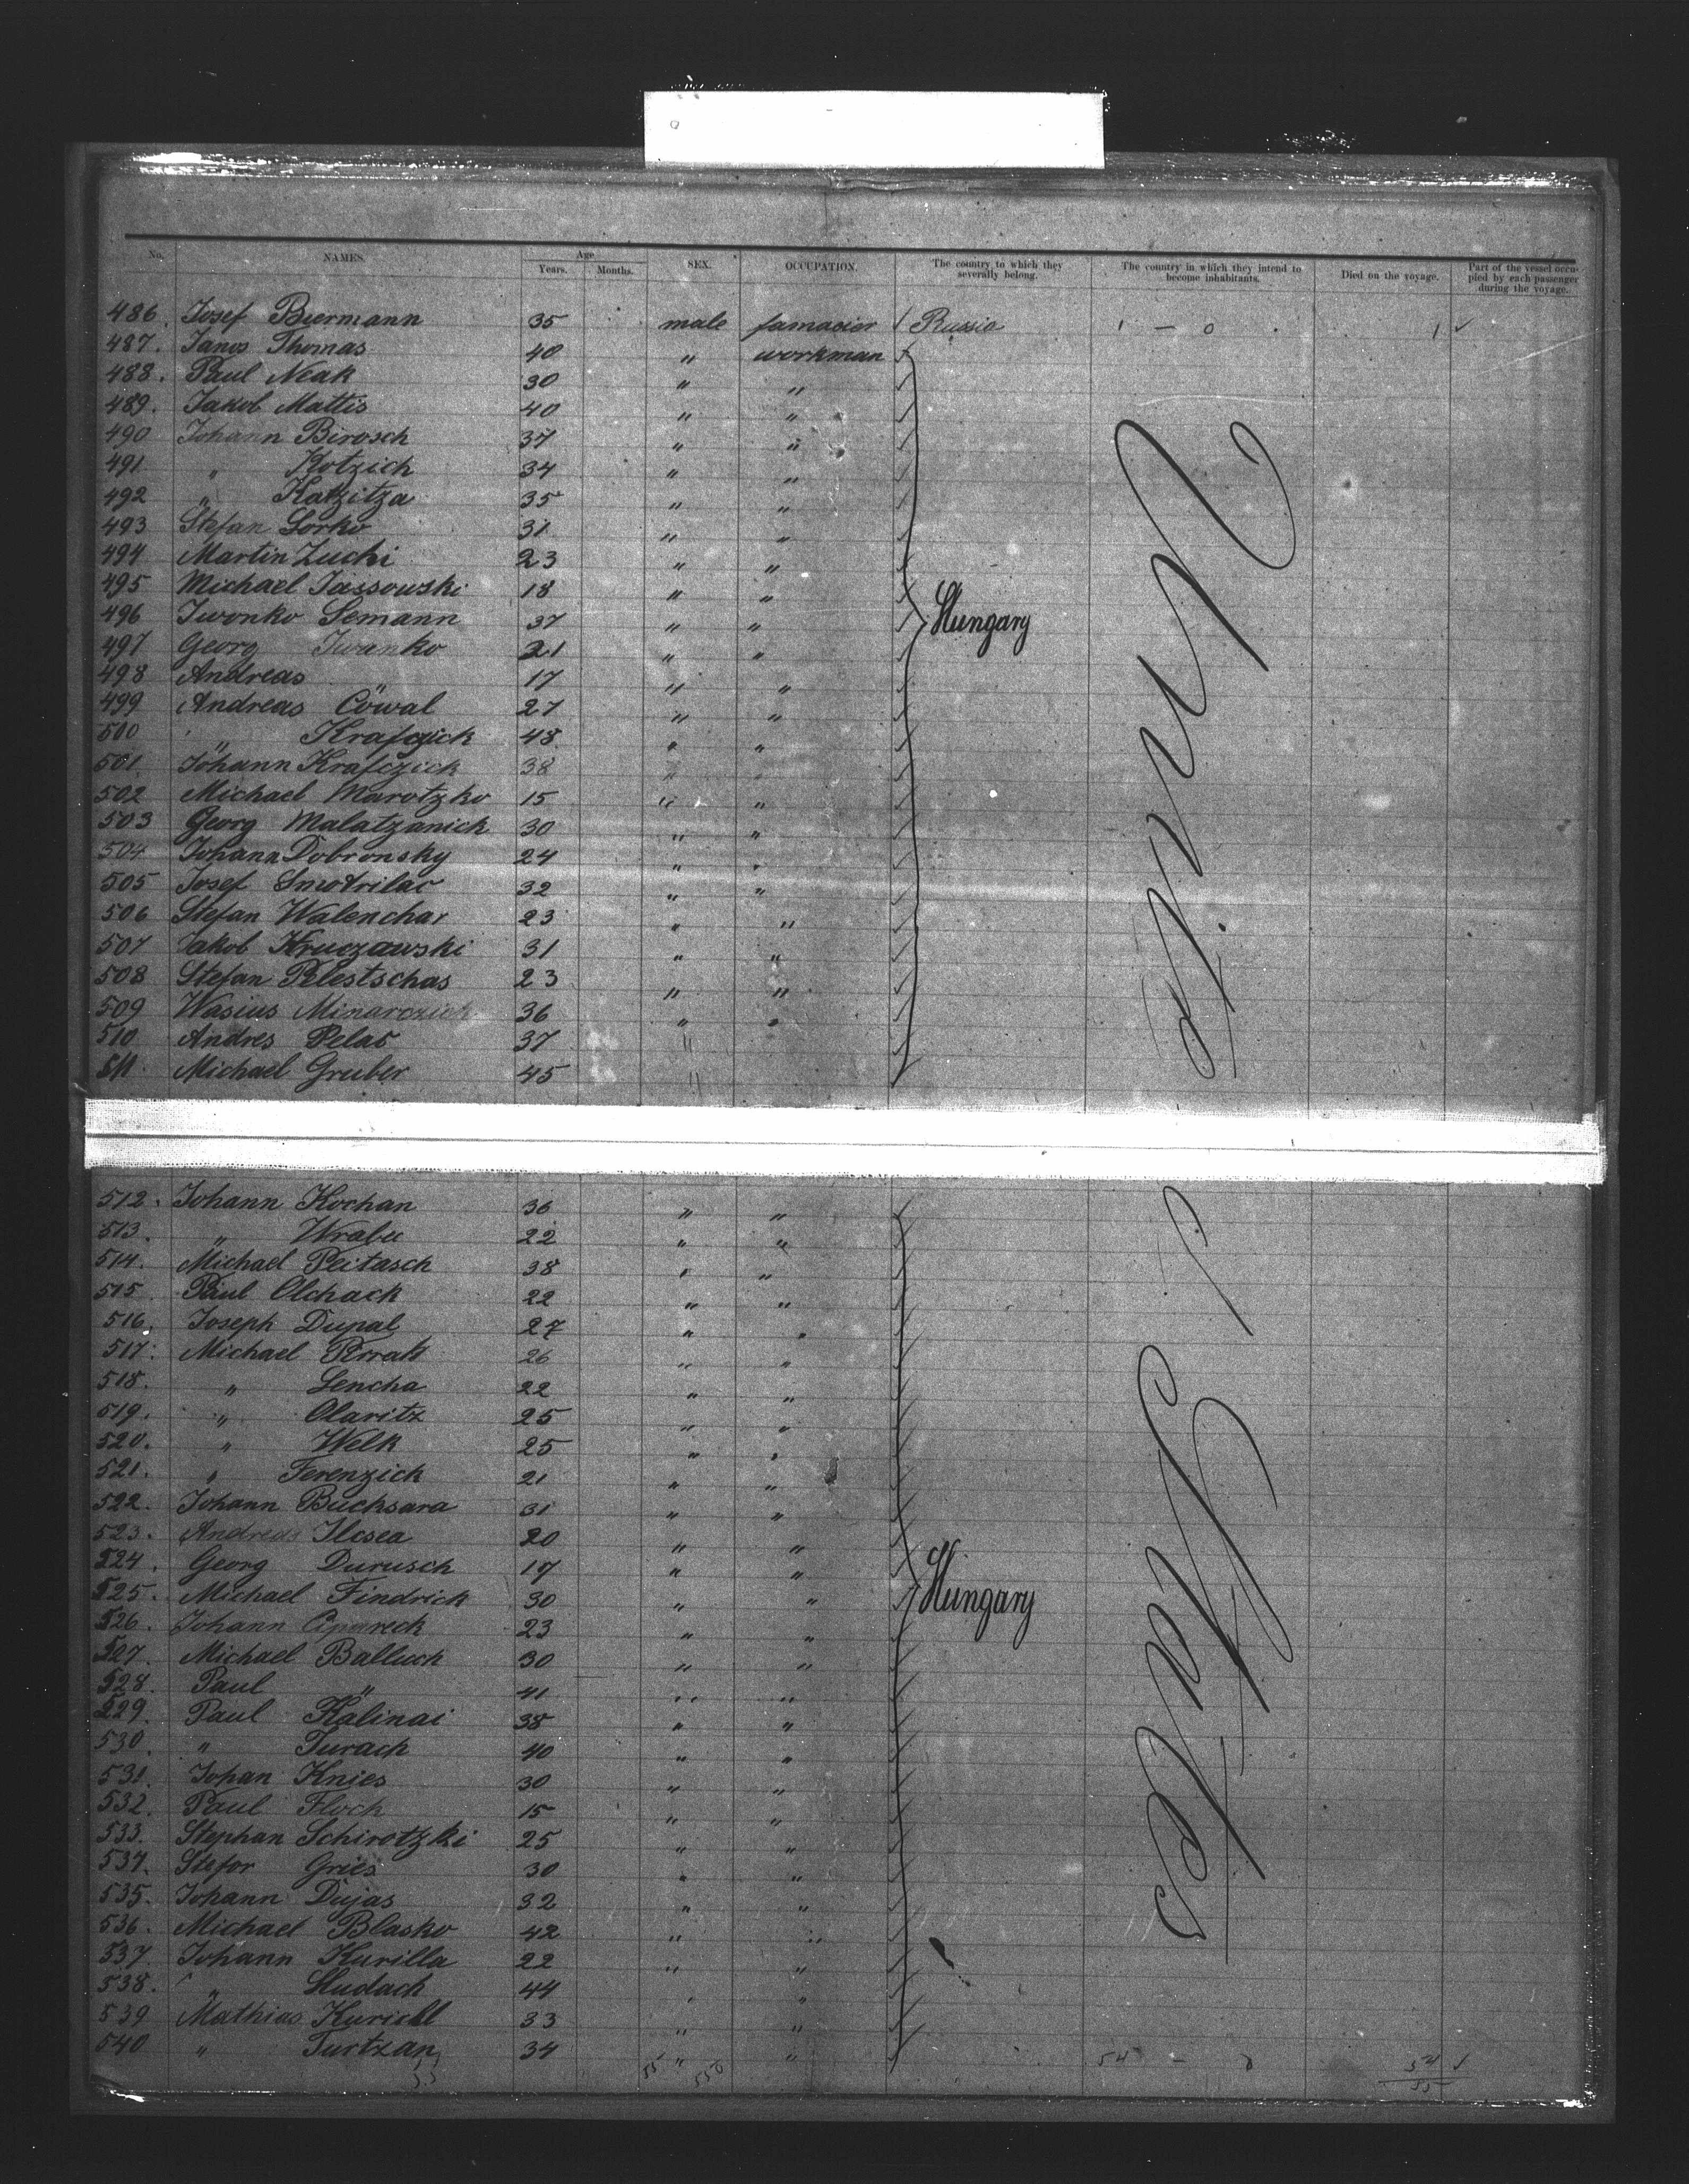 No. NAMES. Age Years. Months. SEX. OCCUPATION. The country to which they severally belong. The country in which they intend to become inhabitants. Died on the voyage. Part of the vessel occupied by each passenger during the voyage.
486. Josef Biermann 35 male Russia 1 — 0 1 ✓
487. Janos Thomas 40 " workman
488. Paul Neak 30 " "
489. Jakob Mattis 40 " "
490 Johann Birosch 37 " "
491 " Kotzich 34 " "
492 " Katzitza 35 " "
493 Stefan Lorko 31 " "
494 Martin Zuchi 23 " "
495 Michael Jassowski 18 " "
496 Iwonko Semann 37 " " Hungary
497 Georg Iwanko 21 " "
498 Andreas " 17 " "
499 Andreas Cowal 27 " "
500 " 48 " "
501 Johann Krafczick 38 " "
502 Michael Marotzko 15 " "
503 Georg Malatzanich 30 " "
504 Johann Dobronsky 24 " "
505 Josef 32 " "
506 Stefan Walenchar 23 " "
507 Jakob Kruczawski 31 " "
508 Stefan Pelestschas 23 " "
509 Wasius Minarczick 36 " "
510 Andres Pelas 37 "
511 Michael Gruber 45 "
United
512. Johann Kochan 36 " "
513. " Wrabec 22 " "
514. Michael Peitasch 38 " "
515. Paul Olchack 22 " "
516. Joseph Dupal 27 " "
517. Michael 26 " "
518. " Lencha 22 " "
519. " Olaritz 25 " "
520. " Welk 25 " "
521. " Ferenzich 21 " "
522. Johann Buchsara 31 " "
523. Andreas Ilcsea 20 " "
524. Georg Durusch 17 " "
525. Michael Findrick 30 " " Hungary
526. Johann 23 " "
527. Michael Balluch 30 " "
528. Paul " 41 " "
529. Paul Kalinai 38 " "
530. " Turach 40 " "
531. Johan Knies 30 " "
532. Paul Floch 15 " "
533. Stephan Schirotzki 25 " "
537. Stefor Gries 30 " "
535. Johann Dujas 32 " "
536. Michael Blasko 42 " "
537. Johann Kurilla 22 " "
538. " Hudach 44 " "
539 Mathias Kurill 33 " "
540 " Turtzan 34 " " 54 — 0 54 ✓
53 55 550 55
States